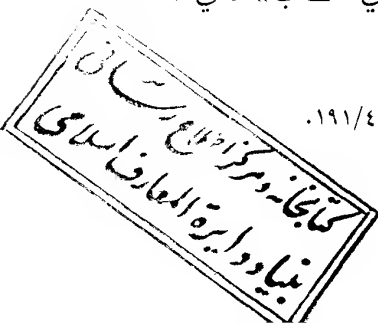 .١٩١/٤
کتابخانه و مرکز اطلاع رسانی
بنیاد دایرة المعارف اسلامی